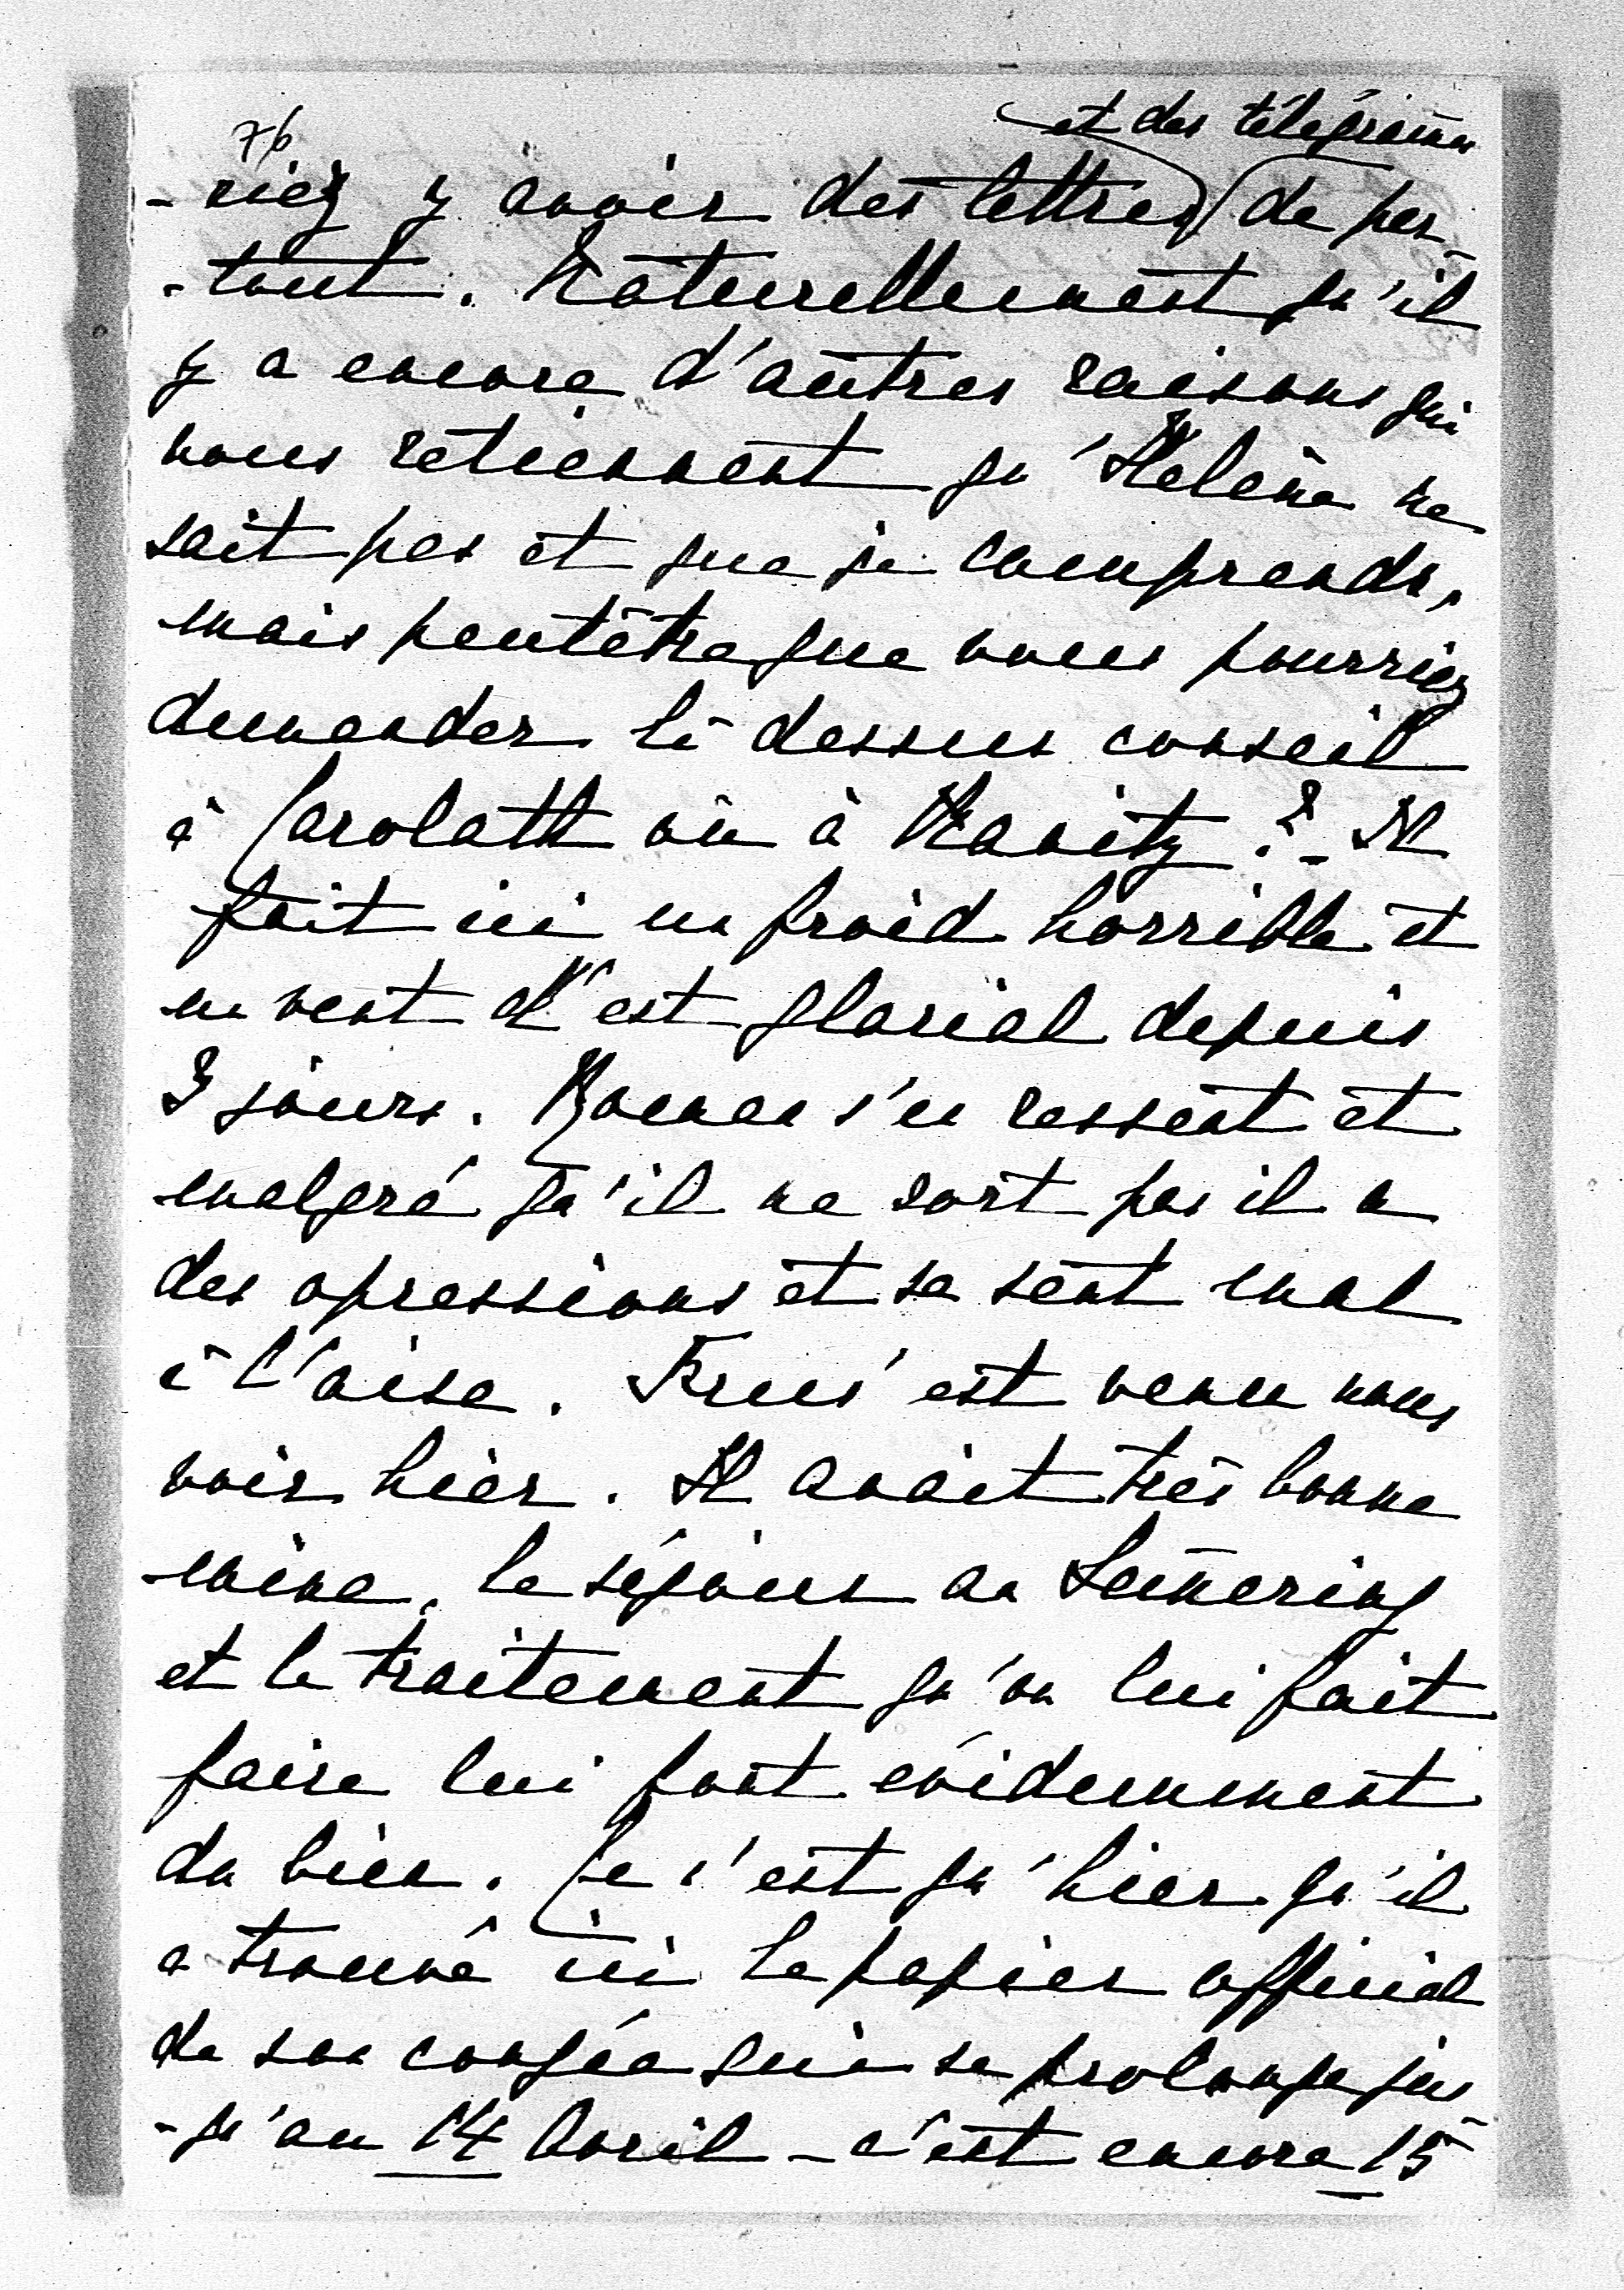 76
et des télégrammes
-riez y avoir des lettres de par-
-tout. Naturellement qu'il
y a encore d'autres raisons qui
vous retiennent qu'Helène ne
sait pas et que je comprends,
mais peutêtre que vous pourriez
demander là dessus conseil
à Carolath où à Kanitz ?- Il
fait ici un froid horrible et
un vent d'est glacial depuis
3 jours. s'en ressent et
malgré qu'il ne sort pas il a
des opressions et se sent mal
à l'aise. est venu nous
voir hier. Il avait très bonne
mine, le séjour au Semering
et le traitement qu'on lui fait
faire lui font évidemment
du bien. Ce n'est qu'hier qu'il
a trouvé ici le papier officiel
de son congée qui se prolonge jus
-qu'au 14 Avril - c'est encore 15